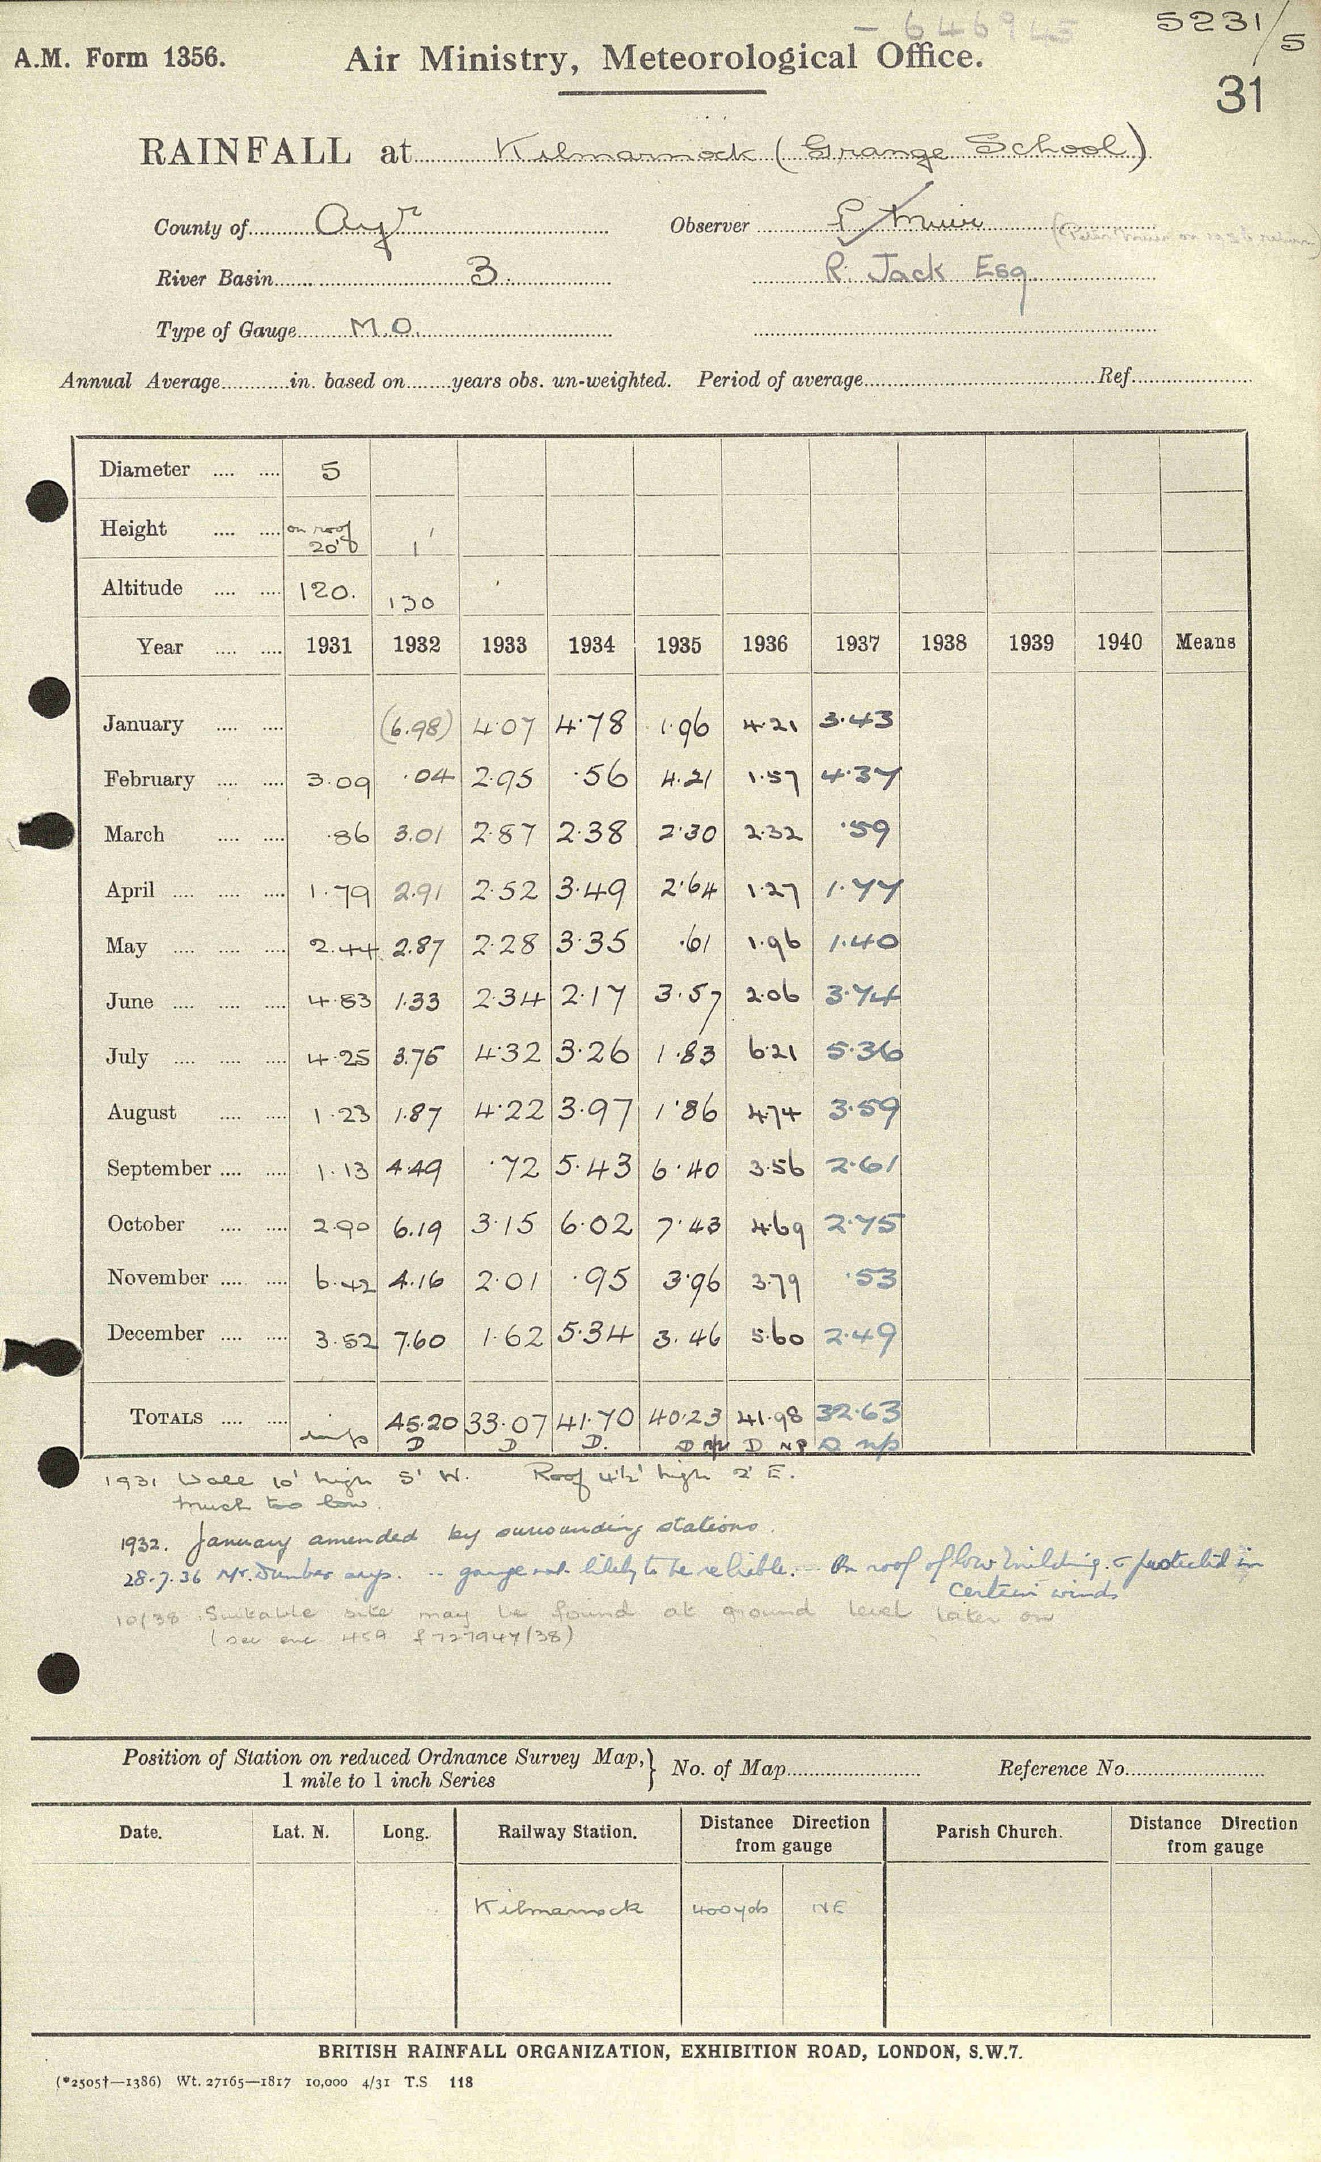 - 646945
5231/5
A.M. Form 1356. Air Ministry, Meteorological Office.
31
RAINFALL at Kilmarnock (Grange School)
County of Ayr Observer P. Muir
River Basin 3. R. Jack Esq
Type of Gauge M.O.
Annual Average in. based on years obs. un-weighted. Period of average Ref.
Diameter 5
Height on roof 20' 1'
Altitude 120. 130
Year 1931 1932 1933 1934 1935 1936 1937 1938 1939 1940 Means
January (6.98) 4.07 4.78 1.96 4.21 3.43
February 3.09 .04 2.95 .56 4.21 1.57 4.37
March .86 3.01 2.87 2.38 2.30 2.32 .59
April 1.79 2.91 2.52 3.49 2.64 1.27 1.77
May 2.44 2.87 2.28 3.35 .61 1.96 1.40
June 4.83 1.33 2.34 2.17 3.57 2.06 3.74
July 4.25 3.75 4.32 3.26 1.83 6.21 5.36
August 1.23 1.87 4.22 3.97 1.86 4.74 3.59
September 1.13 4.49 .72 5.43 6.40 3.56 2.61
October 2.90 6.19 3.15 6.02 7.43 4.69 2.75
November 6.42 4.16 2.01 .95 3.96 3.79 .53
December 3.52 7.60 1.62 5.34 3.46 5.60 2.49
TOTALS imp 45.20 33.07 41.70 40.23 41.98 32.63
D D D. D np D NP D np
1931 Wall 10' high 5' W. Roof 4½' high 2' E.
Much too low.
1932. January amended by surrounding stations.
28.7.36 Mr. Dunbar says. -- gauge not likely to be reliable. - On roof of low building. & protected in
certain winds
10/38 Suitable site may be found at ground level later on
(see enc 459 f 727947/38)
Position of Station on reduced Ordnance Survey Map, 1 mile to 1 inch Series } No. of Map Reference No.
Date. Lat. N. Long. Railway Station. Distance Direction from gauge Parish Church. Distance Direction from gauge
Kilmarnock 400yds NE
BRITISH RAINFALL ORGANIZATION, EXHIBITION ROAD, LONDON, S.W.7.
(*2505†—1386) Wt. 27165—1817 10,000 4/31 T.S 118